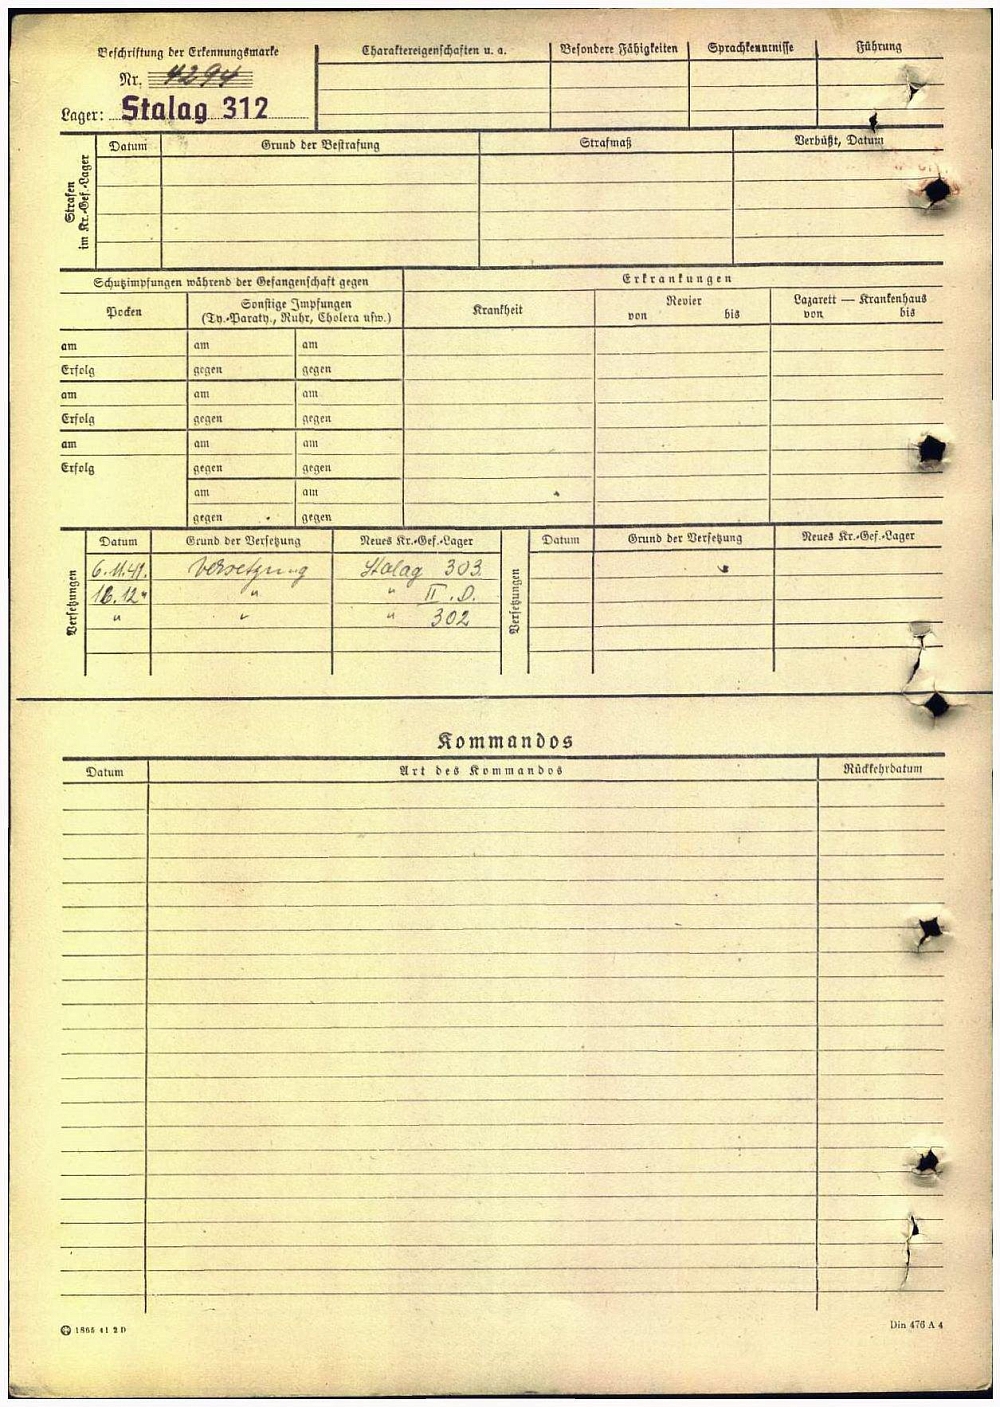 Beschriftung der Erkennungsmarke
Nr. 4294
Lager: Stalag 312
Charaktereigenschaften u. a.
Besondere Fähigkeiten
Sprachkenntnisse
Führung
Strafen im Kr.-Gef.-Lager
Datum
Grund der Bestrafung
Strafmaß
Verbüßt, Datum
Schutzimpfungen während der Gefangenschaft gegen
Erkrankungen
Pocken
Sonstige Impfungen
(Ty.-Paraty., Ruhr, Cholera usw.)
Krankheit
Revier
von bis
Lazarett — Krankenhaus
von bis
am am am
Erfolg gegen gegen
am am am
Erfolg gegen gegen
am am am
Erfolg gegen gegen
am am
gegen gegen
Versetzungen
Datum Grund der Versetzung Neues Kr.-Gef.-Lager
6.11.41. Versetzung Stalag 303.
16.12 " " " II.D.
" " " 302
Versetzungen
Datum Grund der Versetzung Neues Kr.-Gef.-Lager
Kommandos
Datum Art des Kommandos Rückkehrdatum
1865 41 2 D
Din 476 A 4